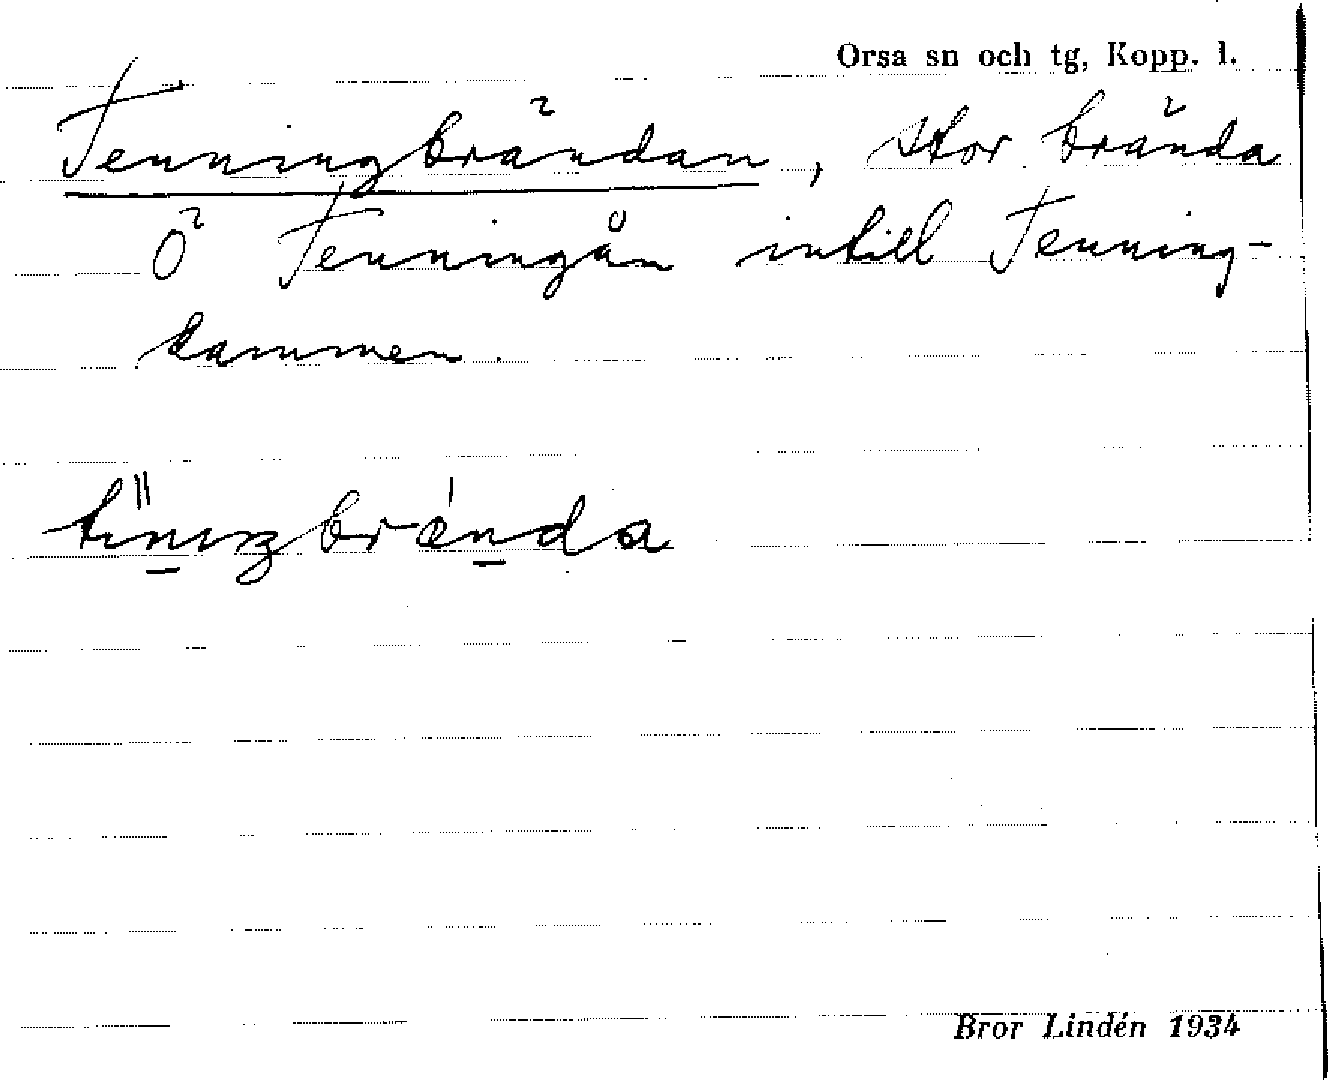 Orsa sn och tg, Kopp. l.
Tenningbrändan, stor brända
Ö Tenningån intill Tenning-
dammen.
Bror Lindén 1934